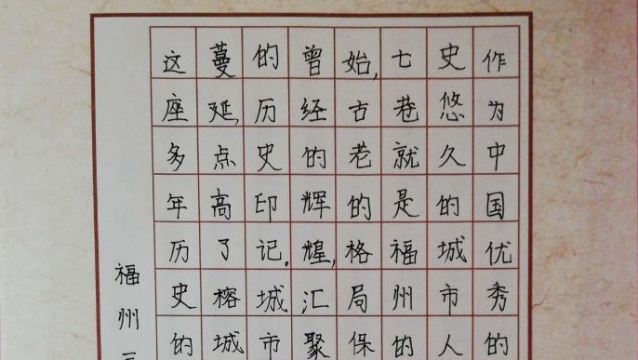 作为中国优秀的
史悠久的城市人
七巷就是福州的
始,古老的格局保
曾经的辉煌,汇聚
的历史印记。城市
蔓延,点高了榕城
这座多年历史的
福州